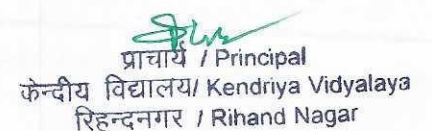 प्राचार्य / Principal
केन्दीय विद्यालय/ Kendriya Vidyalaya
रिहन्दनगर / Rihand Nagar